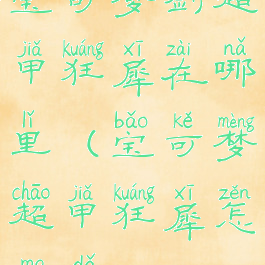 宝可梦剑超
jiǎ kuáng xī zài nǎ
甲狂犀在哪
lǐ bǎo kě mèng
里(宝可梦
chāo jiǎ kuáng xī zěn
超甲狂犀怎